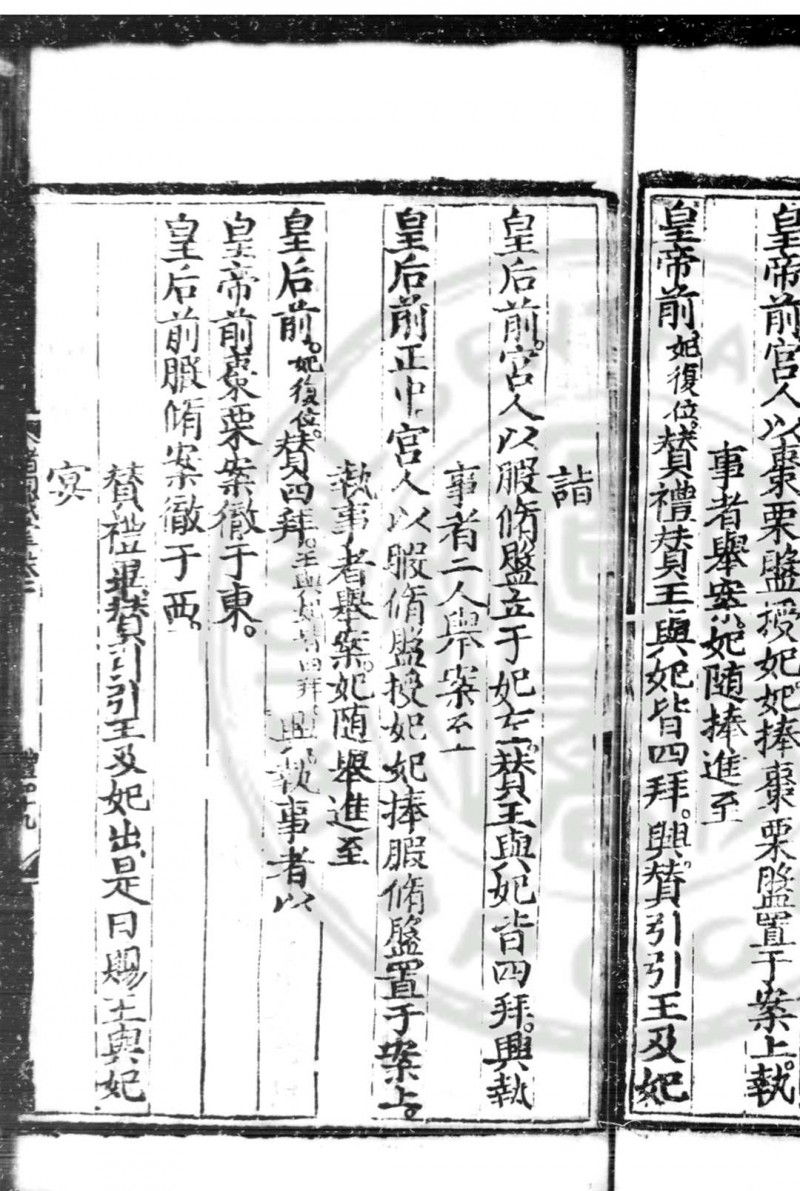 皇帝前宮人以棗栗盤授妃妃捧棗栗盤置于案上。執
事者舉案妃隨捧進至
皇帝前妃復位。贊禮贊王與妃皆四拜。興贊引引王及妃
詣
皇后前。宮人以腶脩盤立于妃左。贊王與妃皆四拜。興執
事者二人舉案
皇后前正中宮人以腶脩盤授妃妃捧腶脩盤置于案上。
執事者舉案。妃隨舉進至
皇后前。妃復位。贊四拜。王與妃皆四拜興執事者以
皇帝前棗栗案徹于東。
皇后前腶脩案徹于西
贊禮贊引引王及妃出是日賜王與妃
宴